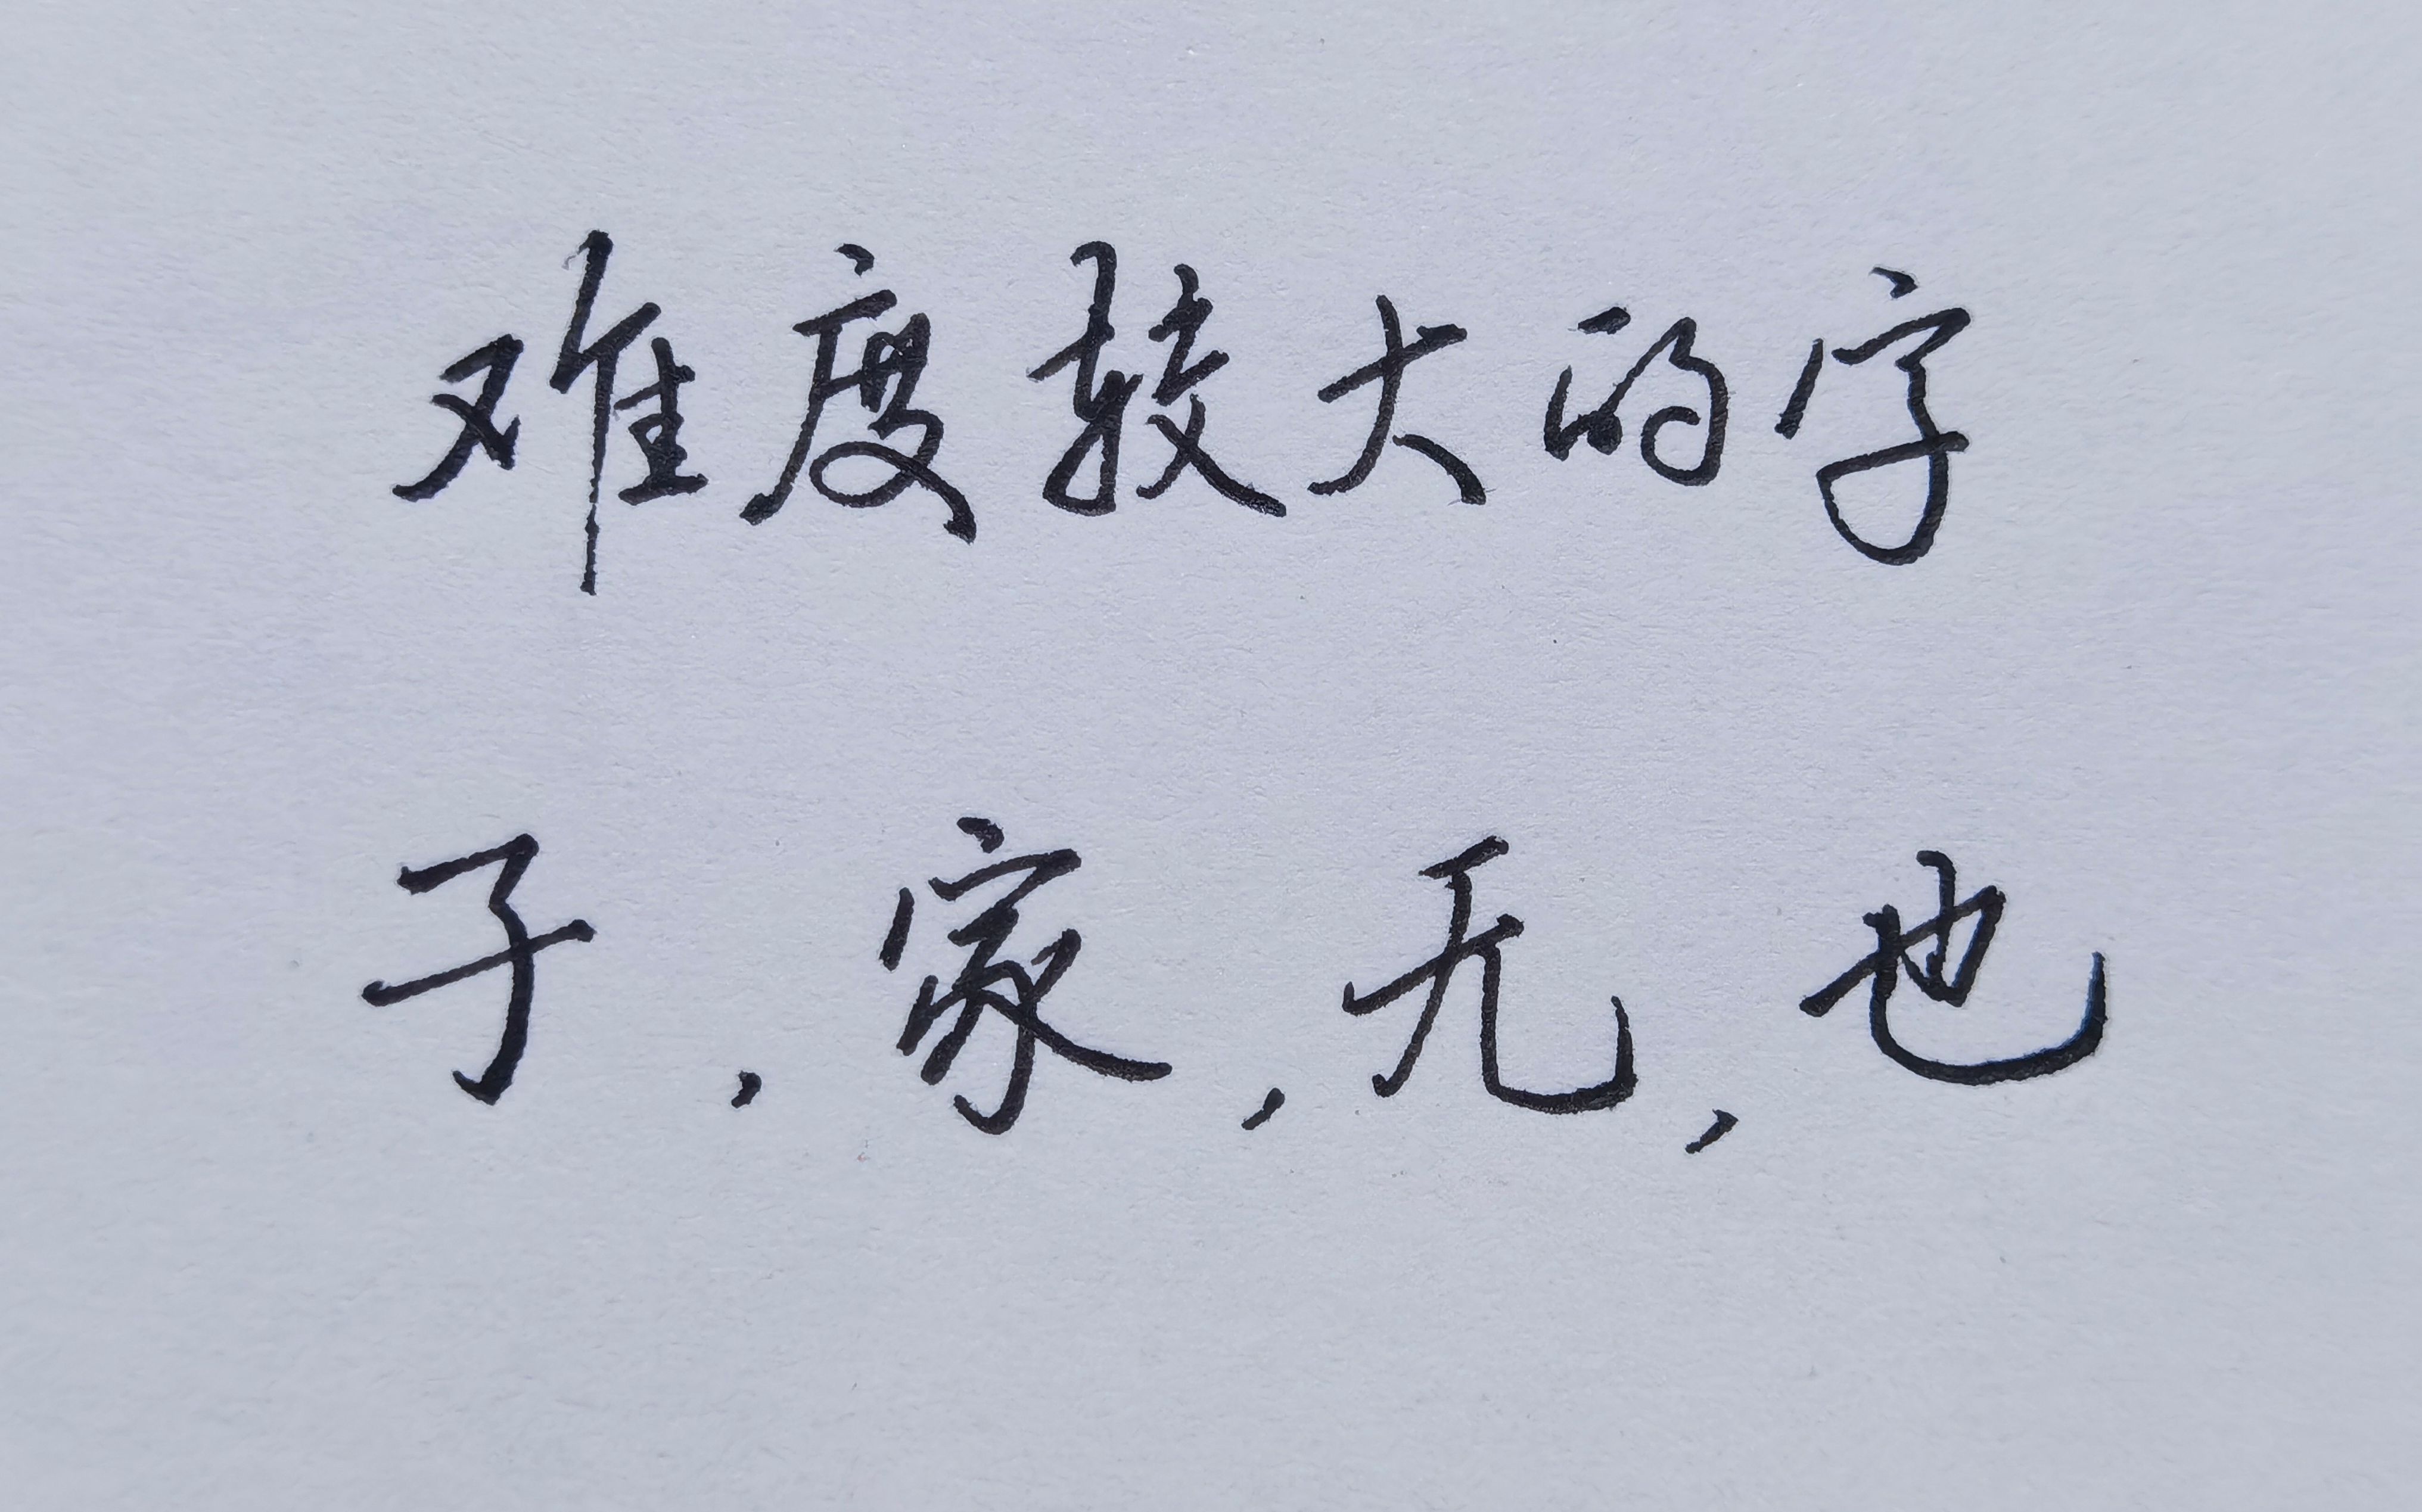 难度较大的字
子,家,无,也